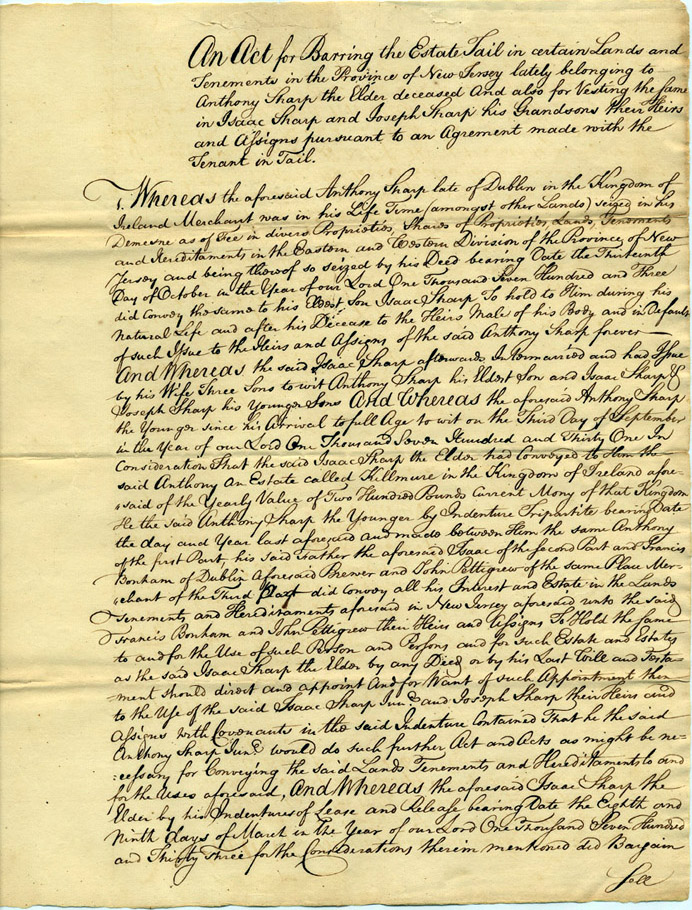 An Act for Barring the Estate Tail in certain Lands and
Tenements in the Province of New Jersey lately belonging to
Anthony Sharp the Elder deceased And also for Vesting the same
in Isaac Sharp and Joseph Sharp his Grandsons their Heirs
and Assigns pursuant to an Agrement made with the
Tenant in Tail.
Whereas the aforesaid Anthony Sharp late of Dublin in the Kingdom of
Ireland Merchant was in his Life Time (amongst other Lands) seized in his
Demesne as of Fee in divers Proprieties, Shares of Proprieties, Lands, Tenements
and Hereditaments in the Eastern and Western Division of the Province of New
Jersey and being thereof so seized by his Deed bearing Date the Thirteenth
Day of October in the Year of our Lord One Thousand Seven Hundred and Three
did Convey the same to his Eldest Son Isaac Sharp To hold to Him during his
Natural Life and after his Decease to the Heirs Male of his Body and in Default
of such Issue to the Heirs and Assigns of the said Anthony Sharp forever
And Whereas the said Isaac Sharp afterwards Intermarried and had Issue
by his Wife Three Sons to wit Anthony Sharp his Eldest Son and Isaac Sharp &
Joseph Sharp his Younger Sons And Whereas the aforesaid Anthony Sharp
the Younger since his Arrival to full Age to wit on the Third Day of September
in the Year of our Lord One Thousand Seven Hundred and Thirty One In
Consideration That the said Isaac Sharp the Elder had Conveyed to Him the
said Anthony An Estate called Killmure in the Kingdom of Ireland afore-
said of the Yearly Value of Two Hundred Pounds Current Mony of that Kingdom
He the said Anthony Sharp the Younger by Indenture Tripartite bearing Date
the day and Year last aforesaid and made between Him the same Anthony
of the first Part, his said Father the aforesaid Isaac of the Second Part and Francis
Bonham of Dublin Aforesaid Brewer and John Pettigrew of the same Place Mer-
chant of the Third Part did Convey all his Interest and Estate in the Lands
Tenements and Hereditaments aforesaid in New Jersey aforesaid unto the said
Francis Bonham and John Pettigrew their Heirs and Assigns To Hold the same
to and for the Use of such Person and Persons and for such Estate and Estates
as the said Isaac Sharp the Elder by any Deed or by his Last Will and Testa-
ment should direct and appoint And for Want of such Appointment then
to the Use of the said Isaac Sharp Junr and Joseph Sharp their Heirs and
Assigns with Covenants in the said Indenture Contained That he the said
Anthony Sharp Junr would do such further Act and Acts as might be ne-
cessary for Conveying the said Lands Tenements and Hereditaments to and
for the Uses aforesaid, And Whereas the aforesaid Isaac Sharp the
Elder by his Indentures of Lease and Release bearing Date the Eighth and
Ninth days of March in the Year of our Lord One Thousand Seven Hundred
and Thirty Three for the Considerations therein mentioned did Bargain
Sell